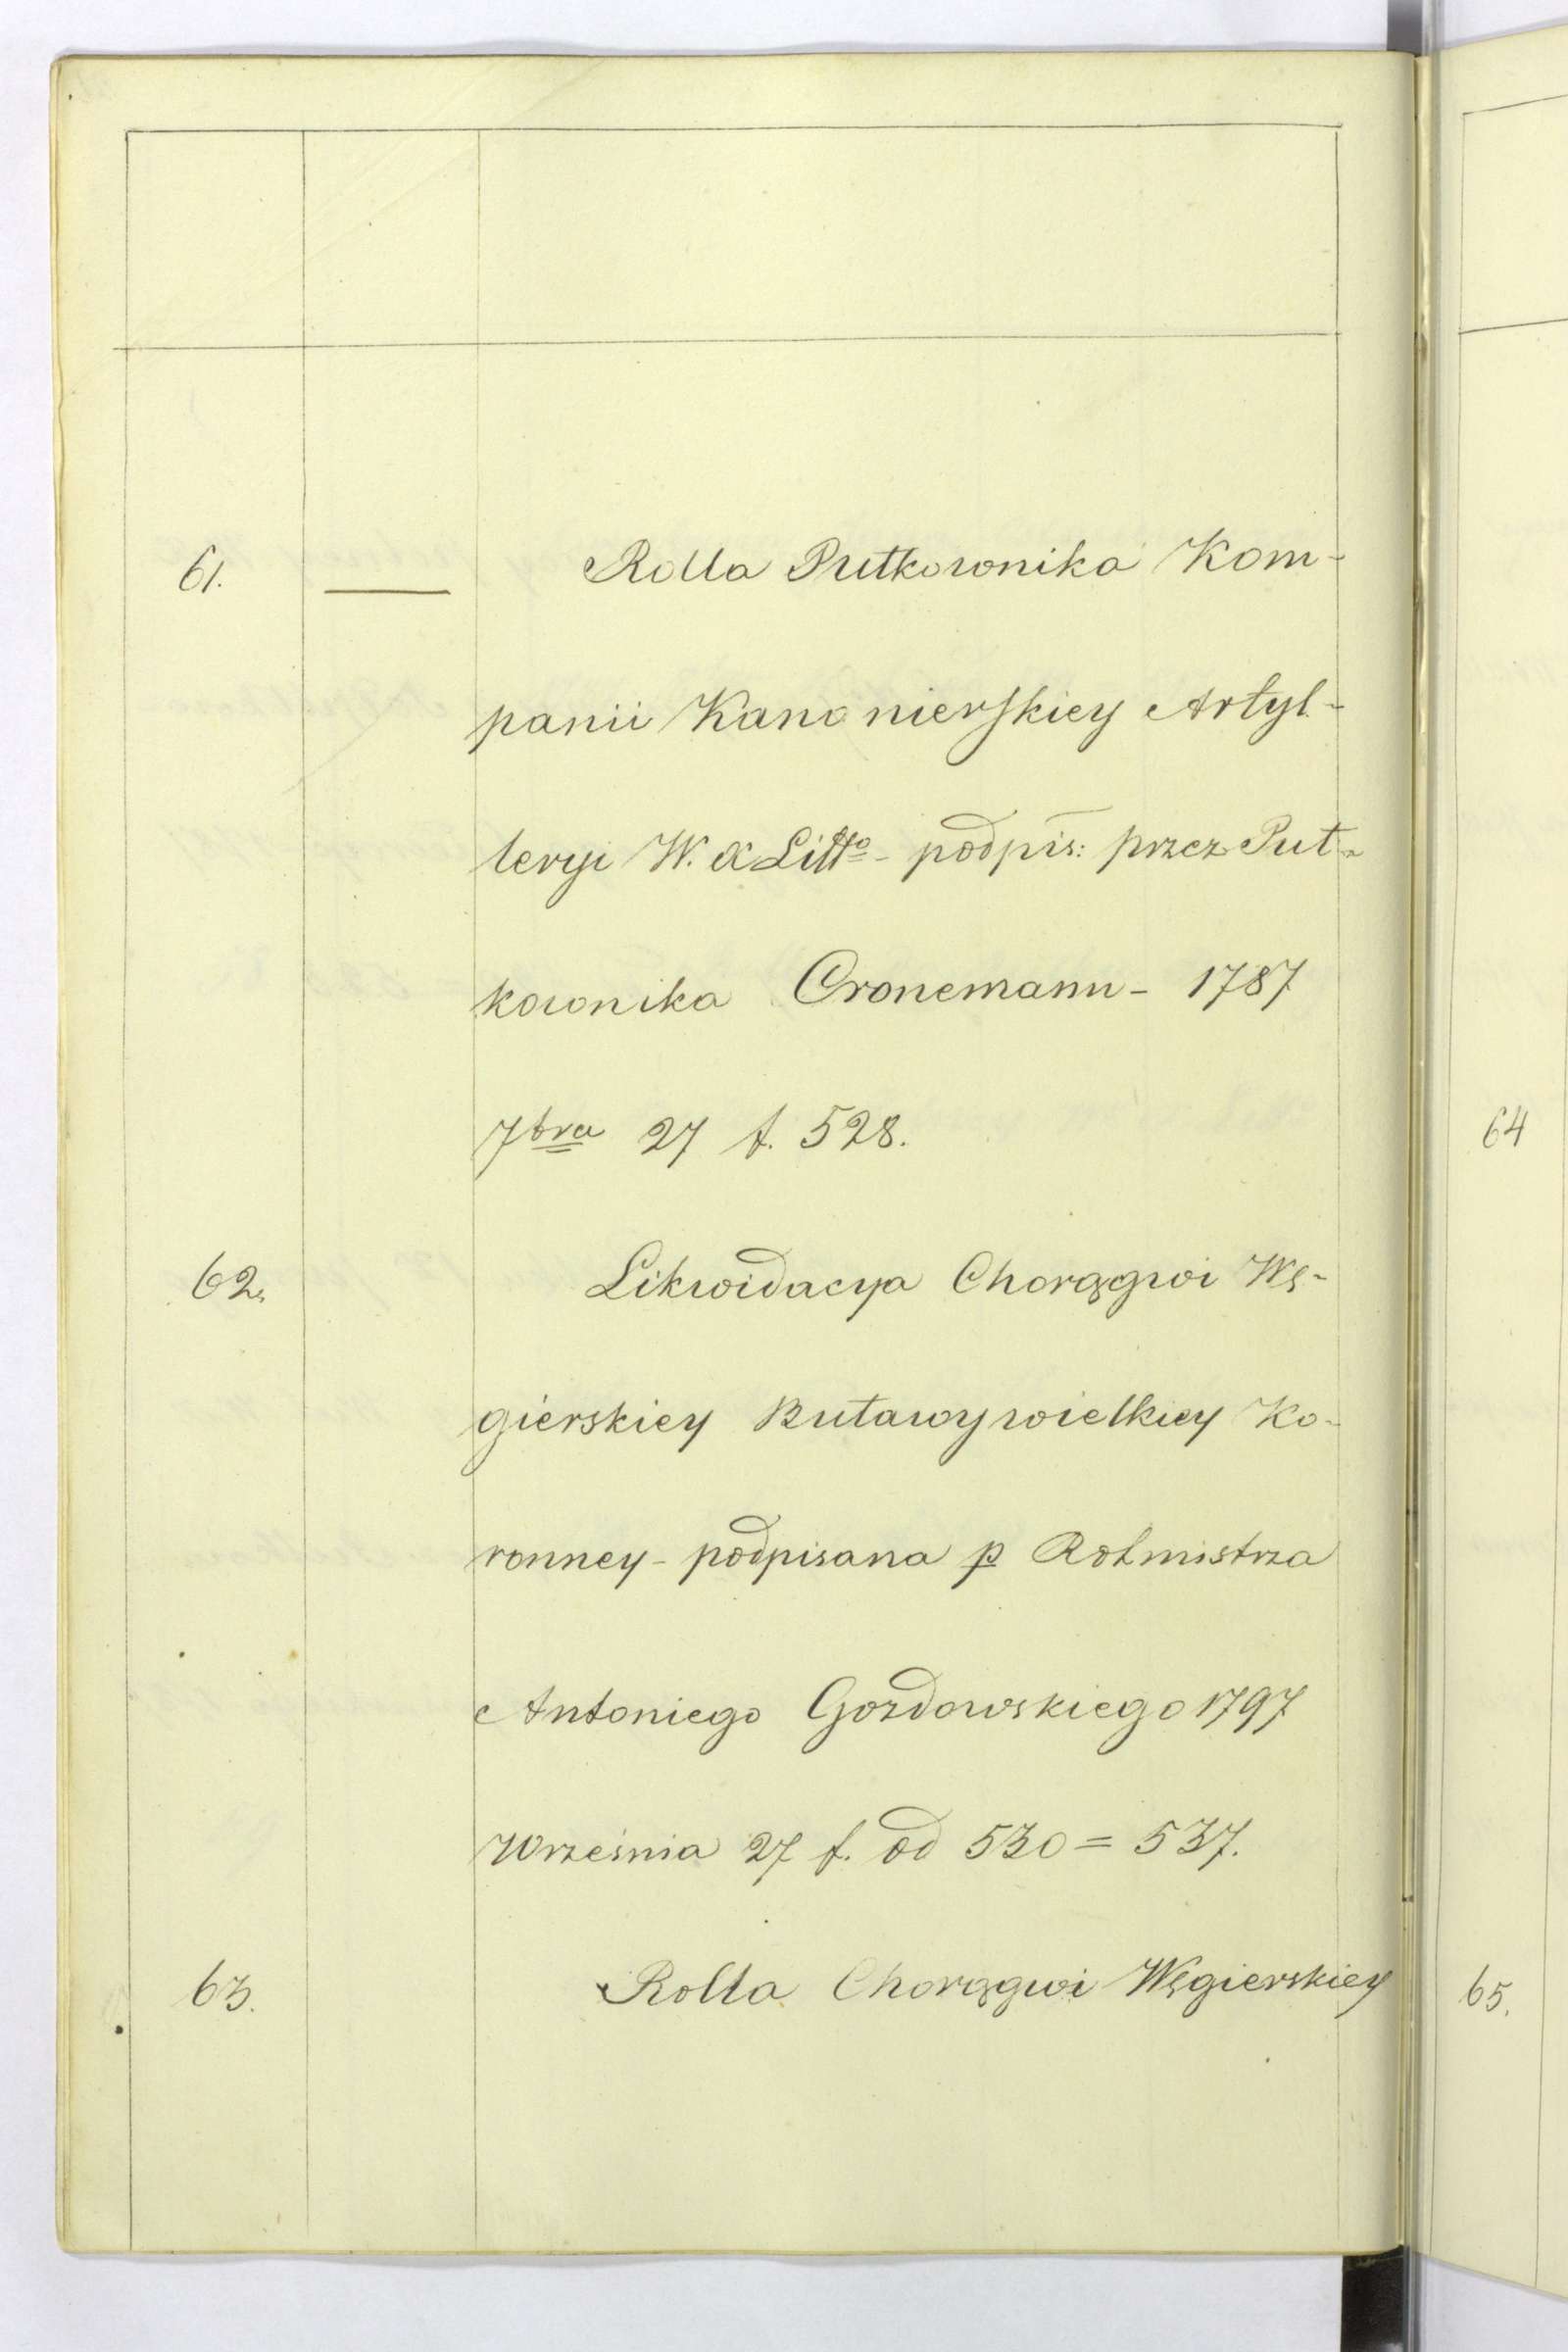 61. — Rolla Pułkownika Kom-
panii Kanonierskiey Artyl-
leryi W. X Litt<sup>o</sup> - podpis: przez Puł-
kownika Cronemann - 1787
7<sup>bra</sup> 27 f. 528.
62. Likwidacya Chorągwi Wę-
gierskiey Buławy wielkiey Ko-
ronney - podpisana p Rotmistrza
Antoniego Gozdowskiego 1797
Września 27 f. od 530 = 537.
63. Rolla Chorągwi Węgierskiey
64
65.